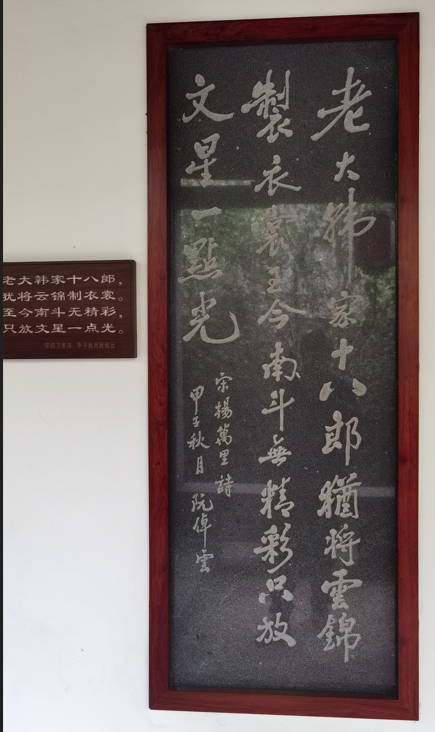 老大韩家十八郎，
犹将云锦制衣裳。
至今南斗无精彩，
只放文星一点光。
老大韩家十八郎猶将雲錦
製衣裳至今南斗無精彩只放
文星一點光
宗楊萬里詩
甲子秋月阮倬雲